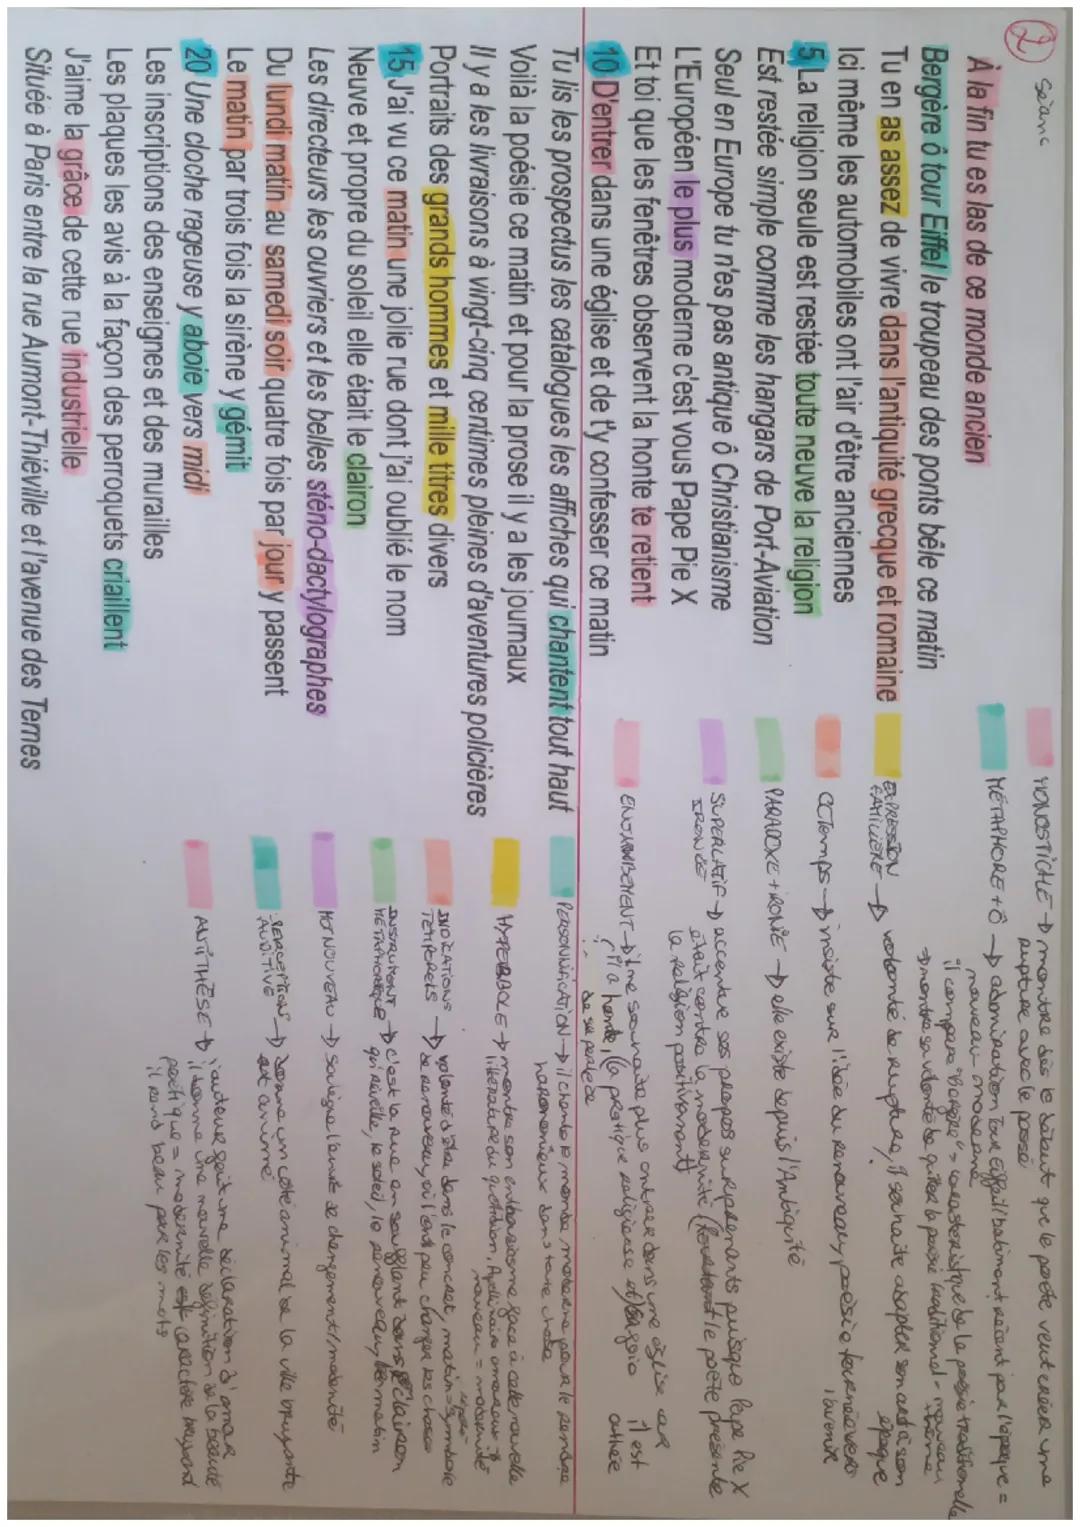 2
Séance
À la fin tu es las de ce monde ancien
Bergère ô tour Eiffel le troupeau des ponts bêle ce matin
Tu en as assez de vivre dans l'antiquité grecque et romaine
Ici même les automobiles ont l'air d'être anciennes
5 La religion seule est restée toute neuve la religion
Est restée simple comme les hangars de Port-Aviation
Seul en Europe tu n'es pas antique ô Christianisme
L'Européen le plus moderne c'est vous Pape Pie X
Et toi que les fenêtres observent la honte te retient
10 D'entrer dans une église et de t'y confesser ce matin
Tu lis les prospectus les catalogues les affiches qui chantent tout haut
Voilà la poésie ce matin et pour la prose il y a les journaux
Il y a les livraisons à vingt-cinq centimes pleines d'aventures policières
Portraits des grands hommes et mille titres divers
15 J'ai vu ce matin une jolie rue dont j'ai oublié le nom
Neuve et propre du soleil elle était le clairon
Les directeurs les ouvriers et les belles sténo-dactylographes
Du lundi matin au samedi soir quatre fois par jour y passent
Le matin par trois fois la sirène y gémit
20 Une cloche rageuse y aboie vers midi
Les inscriptions des enseignes et des murailles
Les plaques les avis à la façon des perroquets criaillent
J'aime la grâce de cette rue industrielle
Située à Paris entre la rue Aumont-Thiéville et l'avenue des Ternes
MONOSTICHE → montre dès le début que le poète veut créer une
rupture avec le passé
MÉTAPHORE + Ô → admiration Tour Eiffel (batiment récent pour l'époque =
nouveau - moderne
il compare "Bergère" = caractéristique de la poésie traditionnelle
→ montre sa volonté de quitter la poésie traditionnel - nouveau
EXPRESSION
FAMILIÈRE → volonté de rupture, il souhaite adapter son art à son
époque
CC Temps → insiste sur l'idée du renouveau, poésie tournée vers
l'avenir
PARADOXE + IRONIE → elle existe depuis l'Antiquité
SUPERLATIF → accentue ses propos surprenants puisque Pape Pie X
IRONIE était contre la modernité ( le poète présente
la religion positivement)
ENJAMBEMENT → il ne souhaite plus entrer dans une église car
il a honte, (la pratique religieuse et) il est
athée
de sa part
PERSONNIFICATION → il chante le monde moderne pour le rendre
harmonieux dans toute chose
HYPERBOLE → montre son enthousiasme face à cette nouvelle
littérature du quotidien, Apollinaire amoureux du
nouveau = modernité
INDICATIONS
TEMPORELS → volonté d'être dans le concret, matin = symbole
de renouveau, où l'on peut changer les choses
INSTRUMENT
MÉTAPHORIQUE → c'est la rue en soufflant dans le clairon
qui réveille, le soleil, le renouveau, le matin
MOT NOUVEAU → souligne l'envie de changement / modernité
PERCEPTIONS
AUDITIVE → donne un côté animal de la ville bruyante
est animé
ANTITHÈSE → l'auteur fait une déclaration d'amour
il donne une nouvelle définition de la beauté
poétique = modernité caractère bruyant
il rend beau par les mots